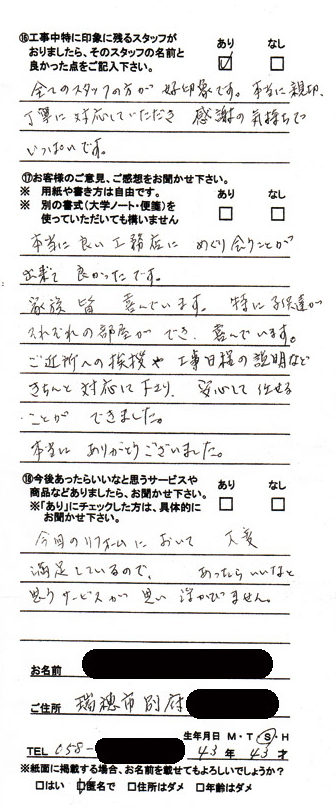 ⑯工事中特に印象に残るスタッフが
おりましたら、そのスタッフの名前と
良かった点をご記入下さい。
あり なし
全てのスタッフの方が 好印象です。本当に親切、
丁寧に対応していただき 感謝の気持ちで
いっぱいです。
⑰お客様のご意見、ご感想をお聞かせ下さい。
※ 用紙や書き方は自由です。
※ 別の書式(大学ノート・便箋)を
使っていただいても構いません
あり なし
本当に良い工務店に めぐり会うことが
出来て 良かったです。
家族皆 喜んでいます。 特に子供達が
それぞれの部屋ができ、喜んでいます。
ご近所への挨拶や工事日程の説明など
きちんと対応して下さり、 安心して任せる
ことが できました。
本当に ありがとうございました。
⑱今後あったらいいなと思うサービスや
商品などありましたら、お聞かせ下さい。
※「あり」にチェックした方は、具体的に
お聞かせ下さい。
あり なし
今回のリフォームに おいて 大変
満足しているので、 あったらいいなと
思うサービスが 思い浮かびません。
お名前
ご住所 瑞穂市別府
生年月日 M・T・S・H
TEL 058- 43年 43才
※紙面に掲載する場合、お名前を載せてもよろしいでしょうか?
□はい □匿名で □住所はダメ □年齢はダメ